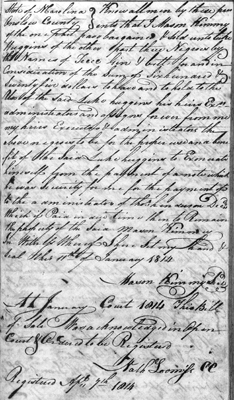 State of N Carolina } Know all men by these pre
County } sents that I Mason Kinny
of the one part have bargained & sold unto Luke
Huggins of the other Part three Negroes by
the Names of & for and in
Consideration of the Sum of hundred &
twenty five dollars to have and to hold to the
the Said Luke huggins his heirs Ex
administrator and assigns for ever from me
my heirs Executors & administrators the
above negroes to be for the proper use and bene
fit of the Said Luke huggins to
himself from the payment of a note which
he was Security for me for the payment of
to the administrator of
Which if Paid in any time then to Remain
the property of the Said Mason Kinny
In Witness Whereof I have Set my hand &
Seal this 11th of January 1814
Mason Kinny
At January Court 1814 This Bill
of Sale Was acknowledged in Open
Court & Ordered to be Registered
CC
Registered Apl 7th 1814